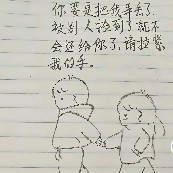 你要是把我弄丢了
被别人捡到了就不
会还给你了,请拉紧
我的手。